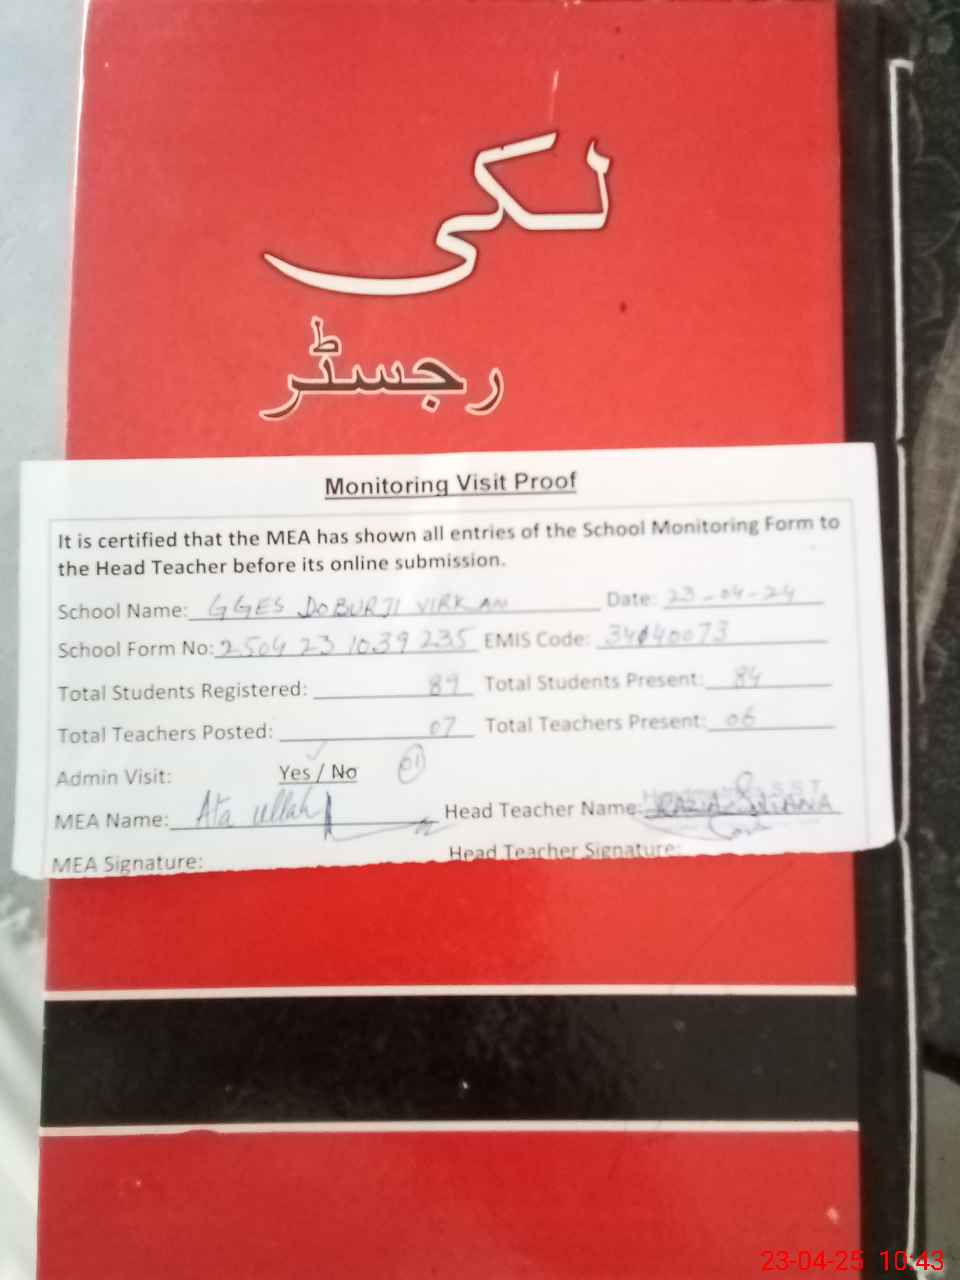 لکی
رجسٹر
Monitoring Visit Proof
It is certified that the MEA has shown all entries of the School Monitoring Form to
the Head Teacher before its online submission.
School Name: GGES DOBURJI VIRKAN Date: 23-04-24
School Form No: 2504 23 1039 235 EMIS Code: 34140073
Total Students Registered: 89 Total Students Present: 84
Total Teachers Posted: 07 Total Teachers Present: 06
Admin Visit: Yes / No 01
MEA Name: Ata ullah Head Teacher Name: RAZIA SULTANA
MEA Signature: Head Teacher Signature:
23-04-25 10:43